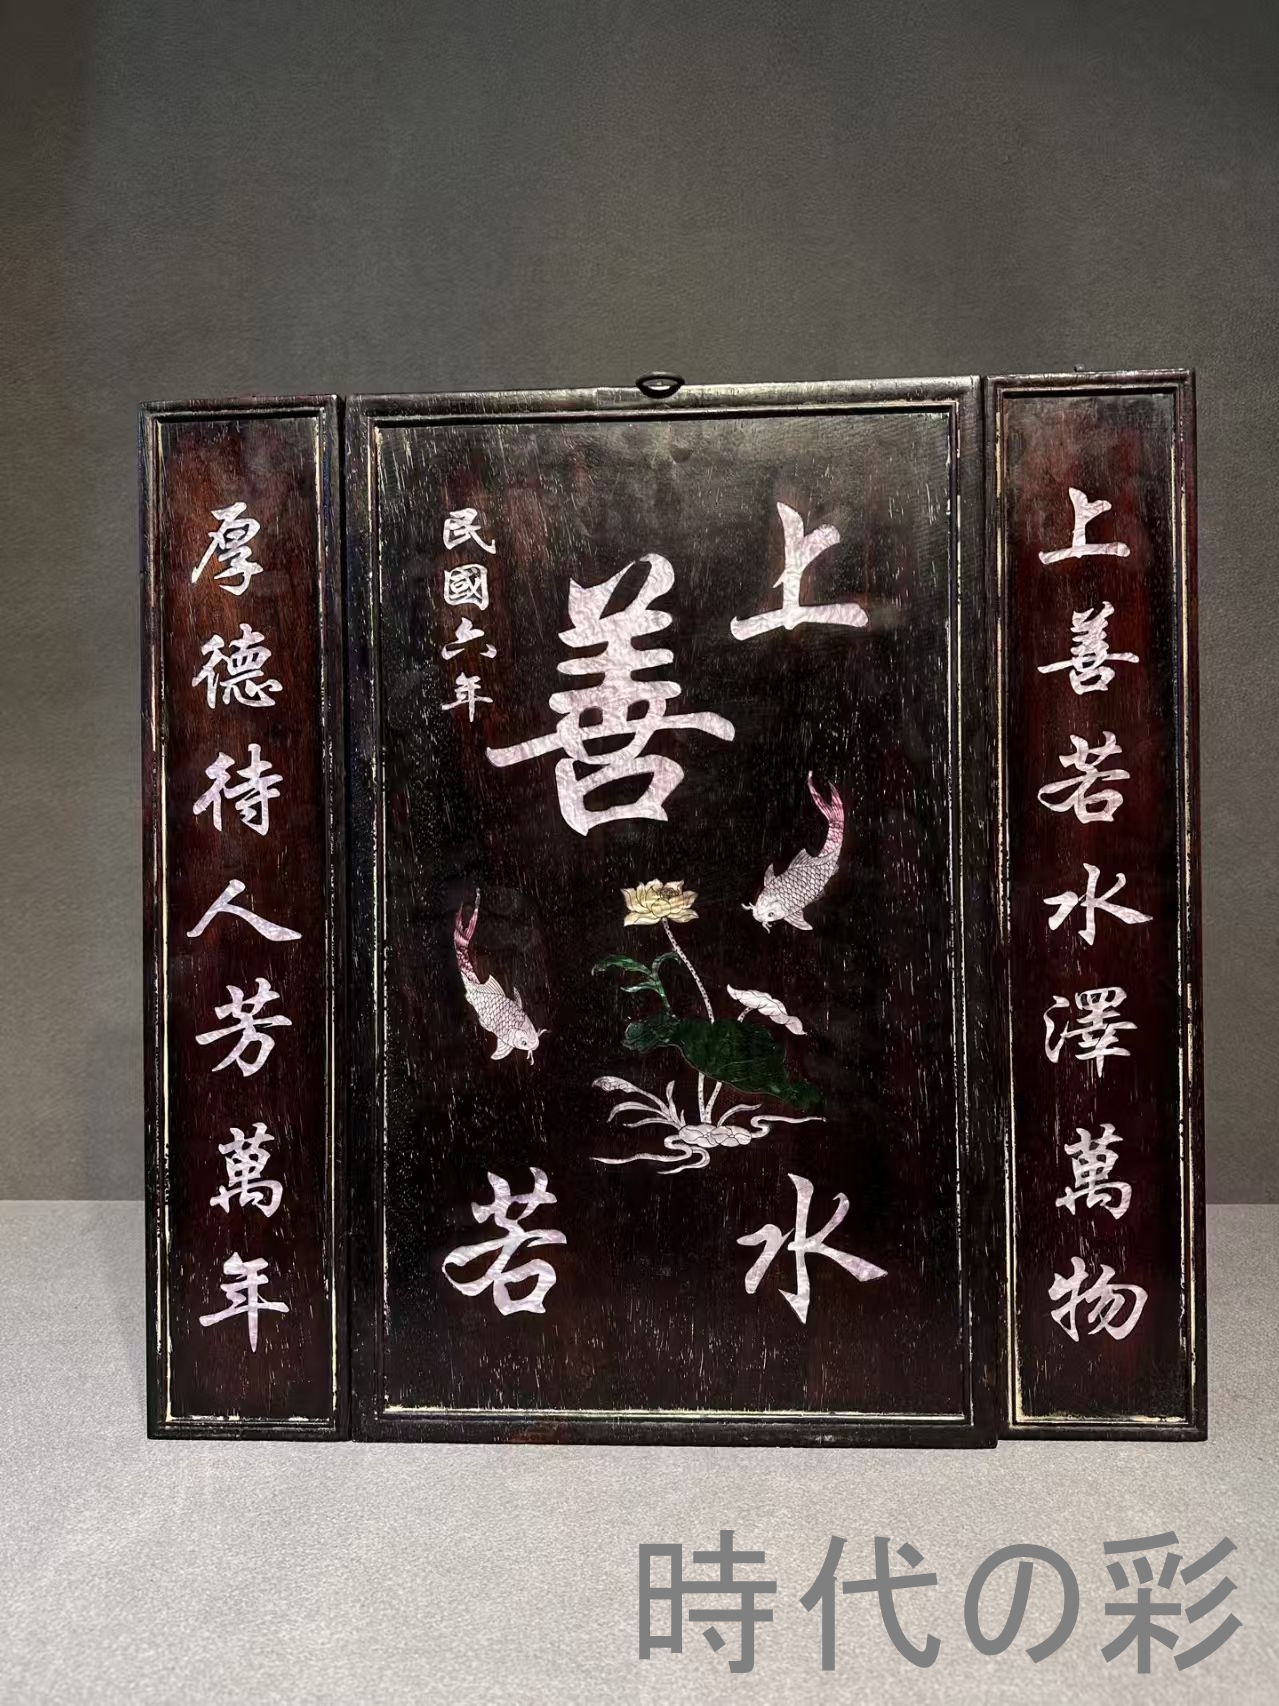 上善若水澤萬物
上善若水
民國六年
厚德待人芳萬年
時代の彩